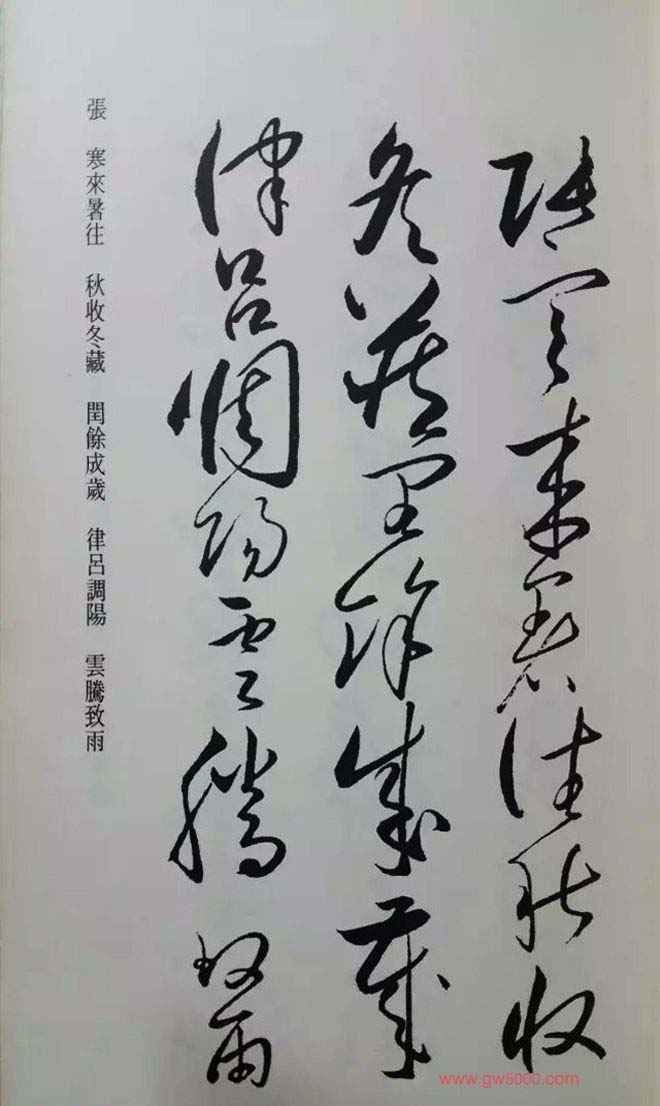 張寒來暑往秋收
冬藏閏餘成歲
律呂調陽雲騰致雨
張 寒來暑往 秋收冬藏 閏餘成歲 律呂調陽 雲騰致雨
www.gw5000.com